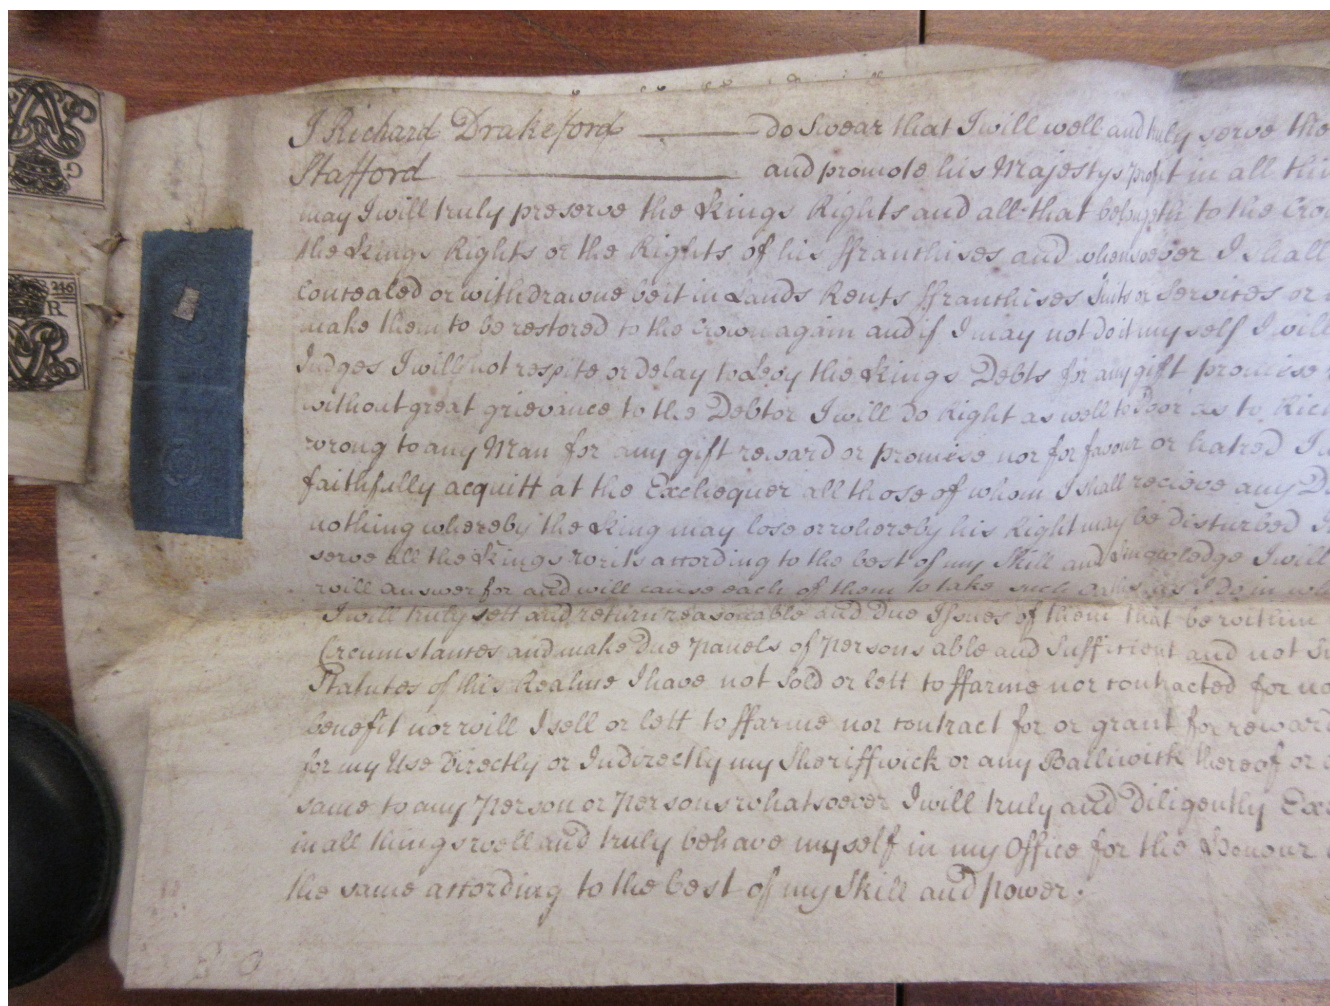 I Richard Drakeford do Swear that I will well and truly serve the
Stafford and promote his Majestys profit in all thi
may I will truly preserve the Kings Rights and all that belongeth to the Cro
the Kings Rights or the Rights of his ffranchises and whensoever I shall
Concealed or withdrawne be it in Lands Rents ffranchises Suits or Services or
make them to be restored to the Crown again and if I may not do it my self I will
Judges I will not respite or delay to Levy the Kings Debts for any gift promisse
without great grievance to the Debtor I will do Right as well to Poor as to Rich
wrong to any Man for any gift reward or promise nor for favour or hatred I
faithfully acquitt at the Exchequer all those of whom I shall recieve any D
nothing whereby the King may lose or whereby his Right may be disturbed I
serve all the Kings writs according to the best of my Skill and Knowledge I will
will answer for and will cause each of them to take such as I do in
I will truly sett and return reasonable and Due Issues of them that be within
Circumstances and make Due Panels of Persons able and Sufficient and not
Statutes of this Realme I have not Sold or lett to ffarme nor contracted for no
benefit nor will I sell or lett to ffarme nor contract for or grant for reward
for my Use Directly or Indirectly my Sheriffwick or any Balliwick thereof or
same to any Person or Persons whatsoever I will truly and Diligently Ex
in all things well and truly behave myself in my Office for the Honour
the same according to the best of my Skill and Power.
246
R